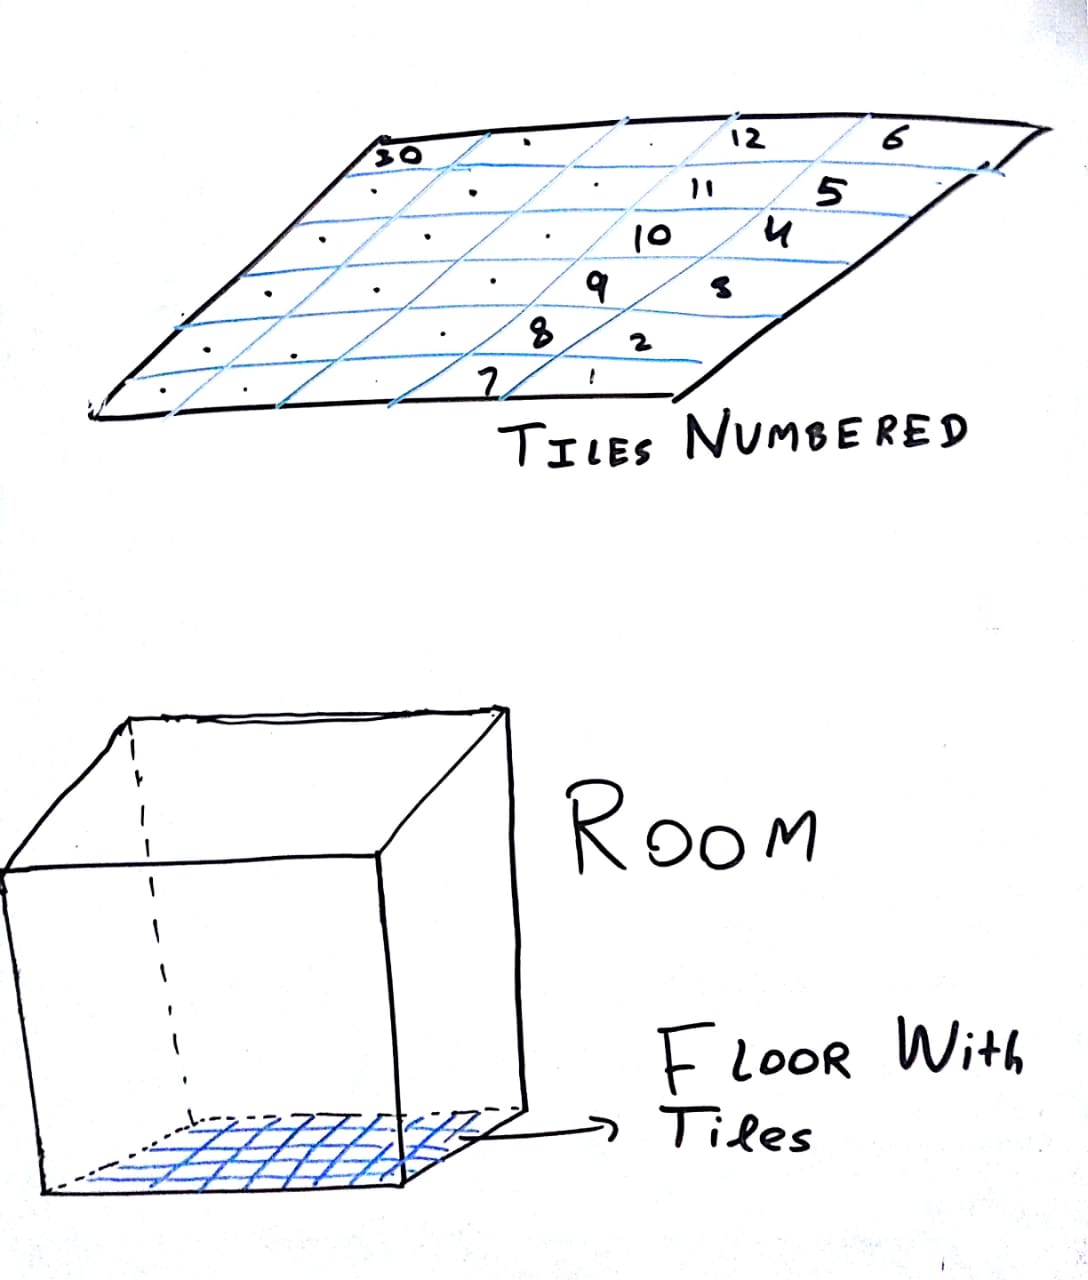 30 12 6
11 5
10 4
9 3
8 2
7 1
TILES NUMBERED
ROOM
FLOOR With
Tiles